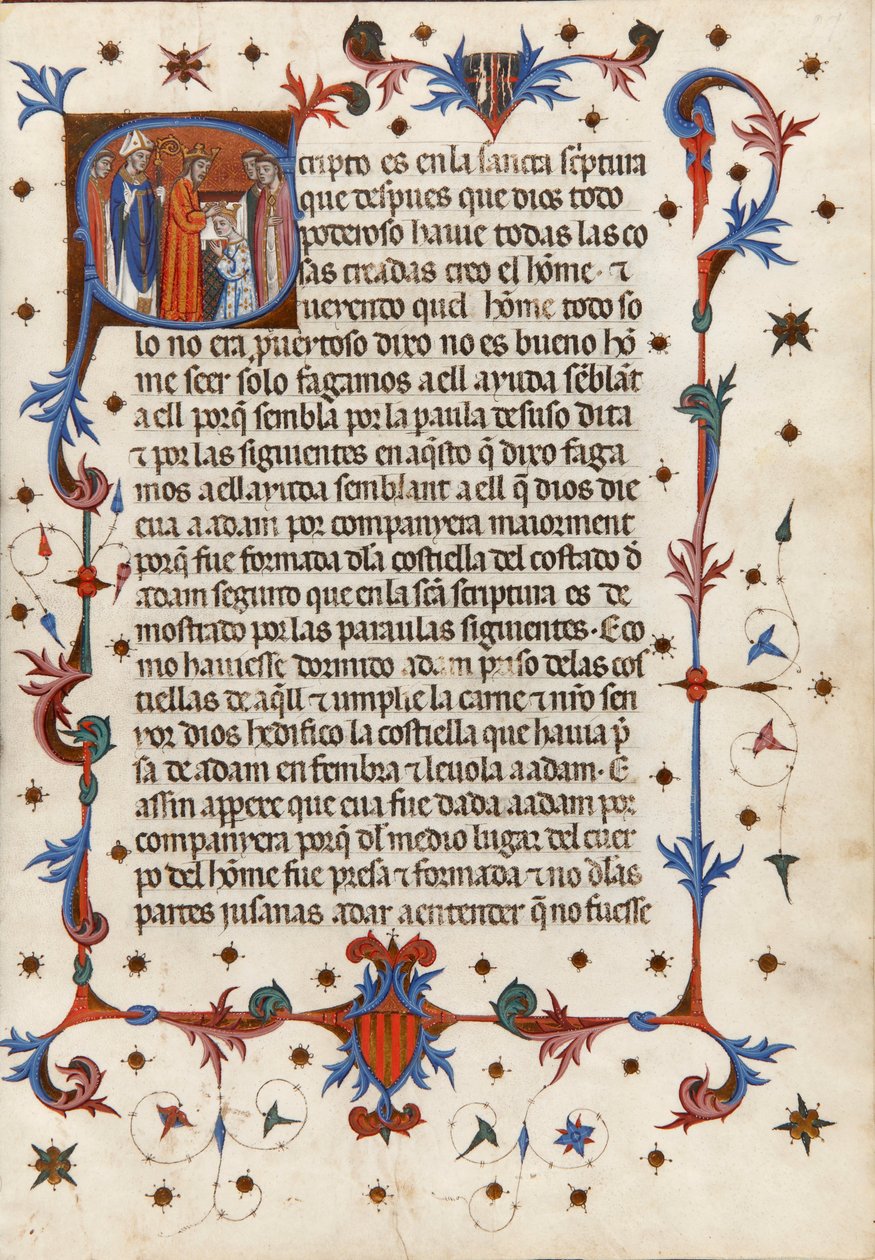 Scripto es en la sancta sc̃ptura
que despues que dios todo
poderoso hauie todas las co
sas creadas creo el hõme · ⁊
veyendo quel hõme todo so
lo no era ꝓueytoso dixo no es bueno hõ
me seer solo fagamos a ell ayuda sẽblãt
a ell porq̃ sembla por la paula desuso dita
⁊ por las siguientes en aq̃sto q̃ dixo faga
mos a ell ayuda semblant a ell q̃ dios die
eua a adam por companyera maiorment
porq̃ fue formada dl̃a costiella del costado d̃
adam seguito que en la sc̃a scriptura es de
mostrado por las paraulas siguientes · E co
mo hauiesse dormido adam priso de las cos
tiellas de aq̃ll ⁊ umplie la carne ⁊ nr̃o sen
yor dios hedifico la costiella que hauia p̃
sa de adam en fembra ⁊ leuola a adam · E
assin apꝑere que eua fue dada a adam por
companyera porq̃ dl̃ medio lugar del cuer
po del hõme fue presa ⁊ formada ⁊ no dl̃as
partes jusanas a dar a entender q̃ no fuesse